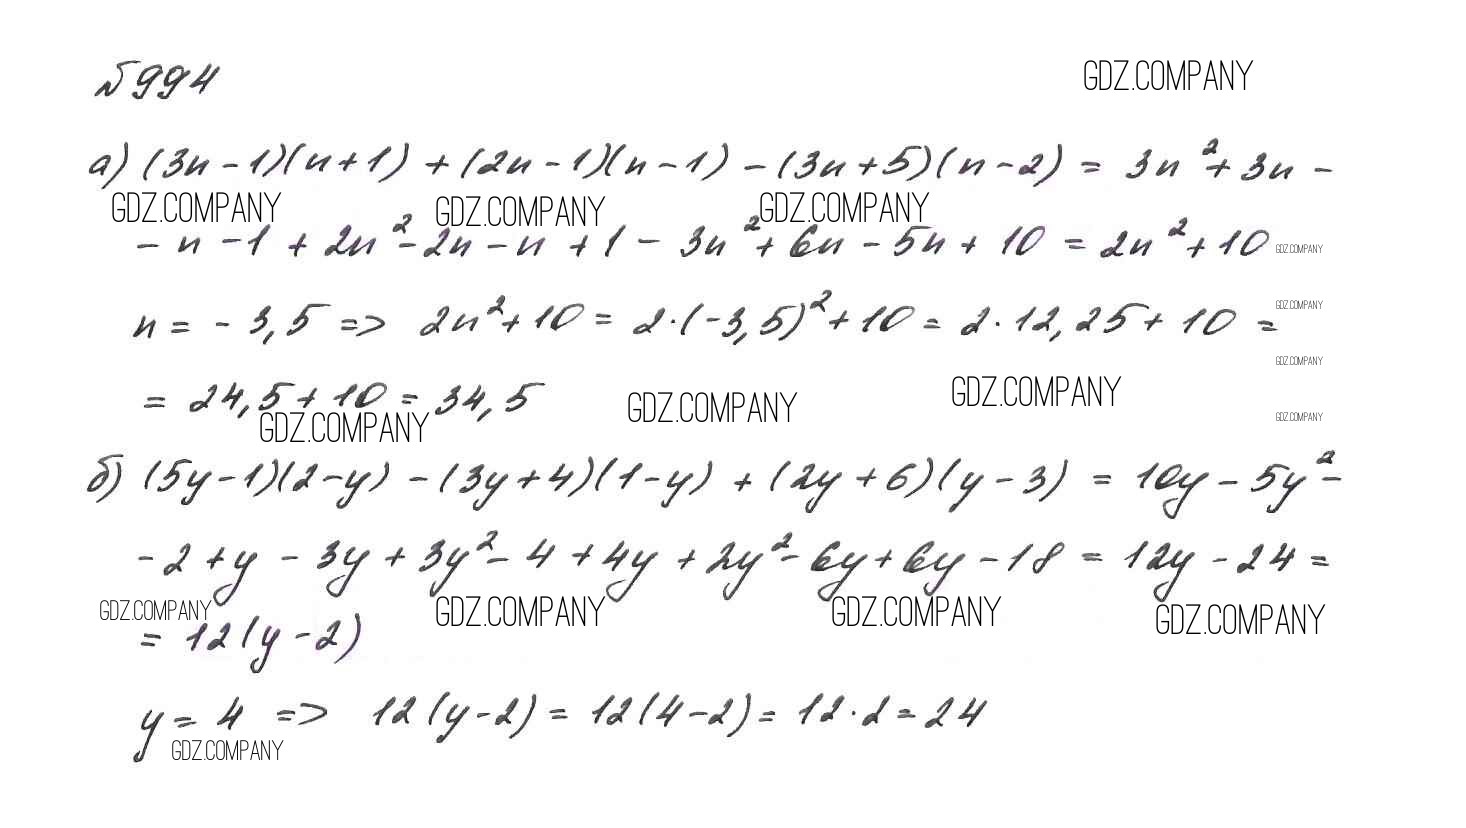 №994
GDZ.COMPANY
а) (3n - 1)(n + 1) + (2n - 1)(n - 1) - (3n + 5)(n - 2) = 3n² + 3n -
GDZ.COMPANY GDZ.COMPANY GDZ.COMPANY
- n - 1 + 2n² - 2n - n + 1 - 3n² + 6n - 5n + 10 = 2n² + 10
GDZ.COMPANY
n = - 3,5 => 2n² + 10 = 2·(-3,5)² + 10 = 2·12,25 + 10 =
GDZ.COMPANY
GDZ.COMPANY
= 24,5 + 10 = 34,5
GDZ.COMPANY GDZ.COMPANY GDZ.COMPANY
GDZ.COMPANY
б) (5y - 1)(2 - y) - (3y + 4)(1 - y) + (2y + 6)(y - 3) = 10y - 5y² -
- 2 + y - 3y + 3y² - 4 + 4y + 2y² - 6y + 6y - 18 = 12y - 24 =
GDZ.COMPANY GDZ.COMPANY GDZ.COMPANY GDZ.COMPANY
= 12(y - 2)
y = 4 => 12(y - 2) = 12(4 - 2) = 12·2 = 24
GDZ.COMPANY